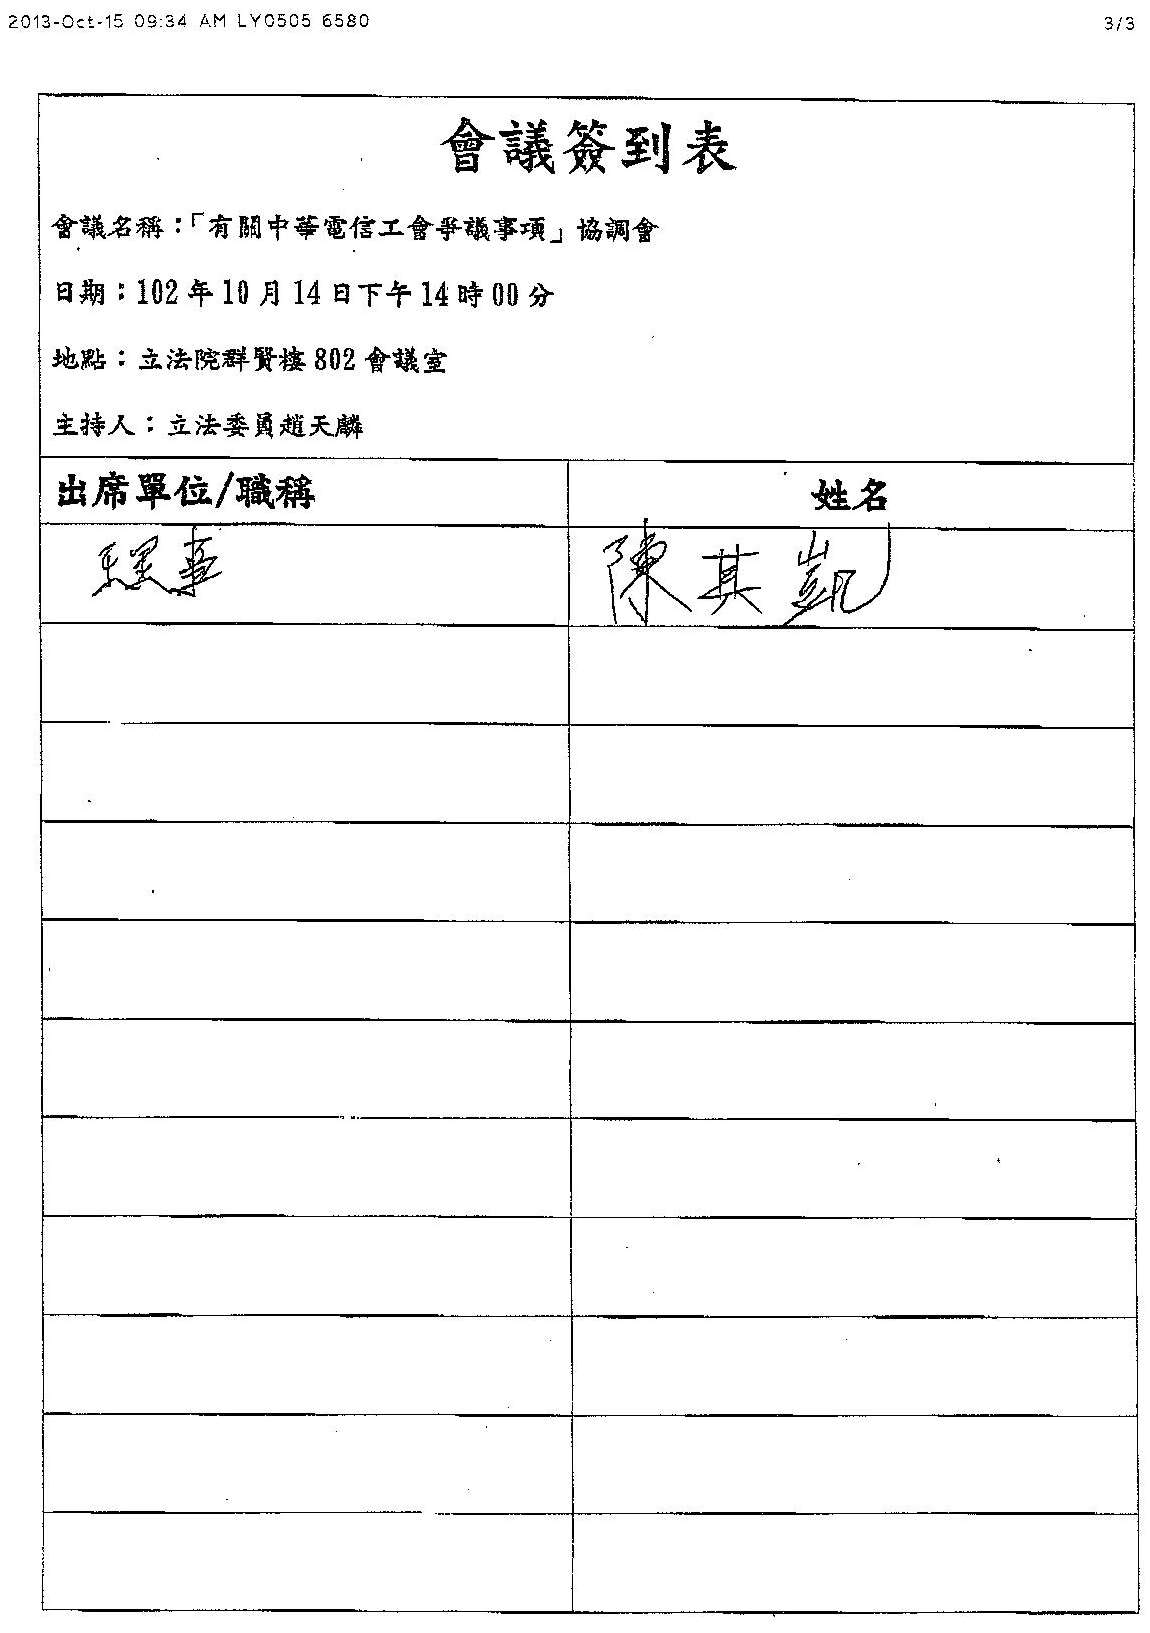 2013-Oct-15 09:34 AM LY0505 6580 3/3
會議簽到表
會議名稱：「有關中華電信工會爭議事項」協調會
日期：102年10月14日下午14時00分
地點：立法院群賢樓802會議室
主持人：立法委員趙天麟
出席單位/職稱 姓名
理事 陳其凱